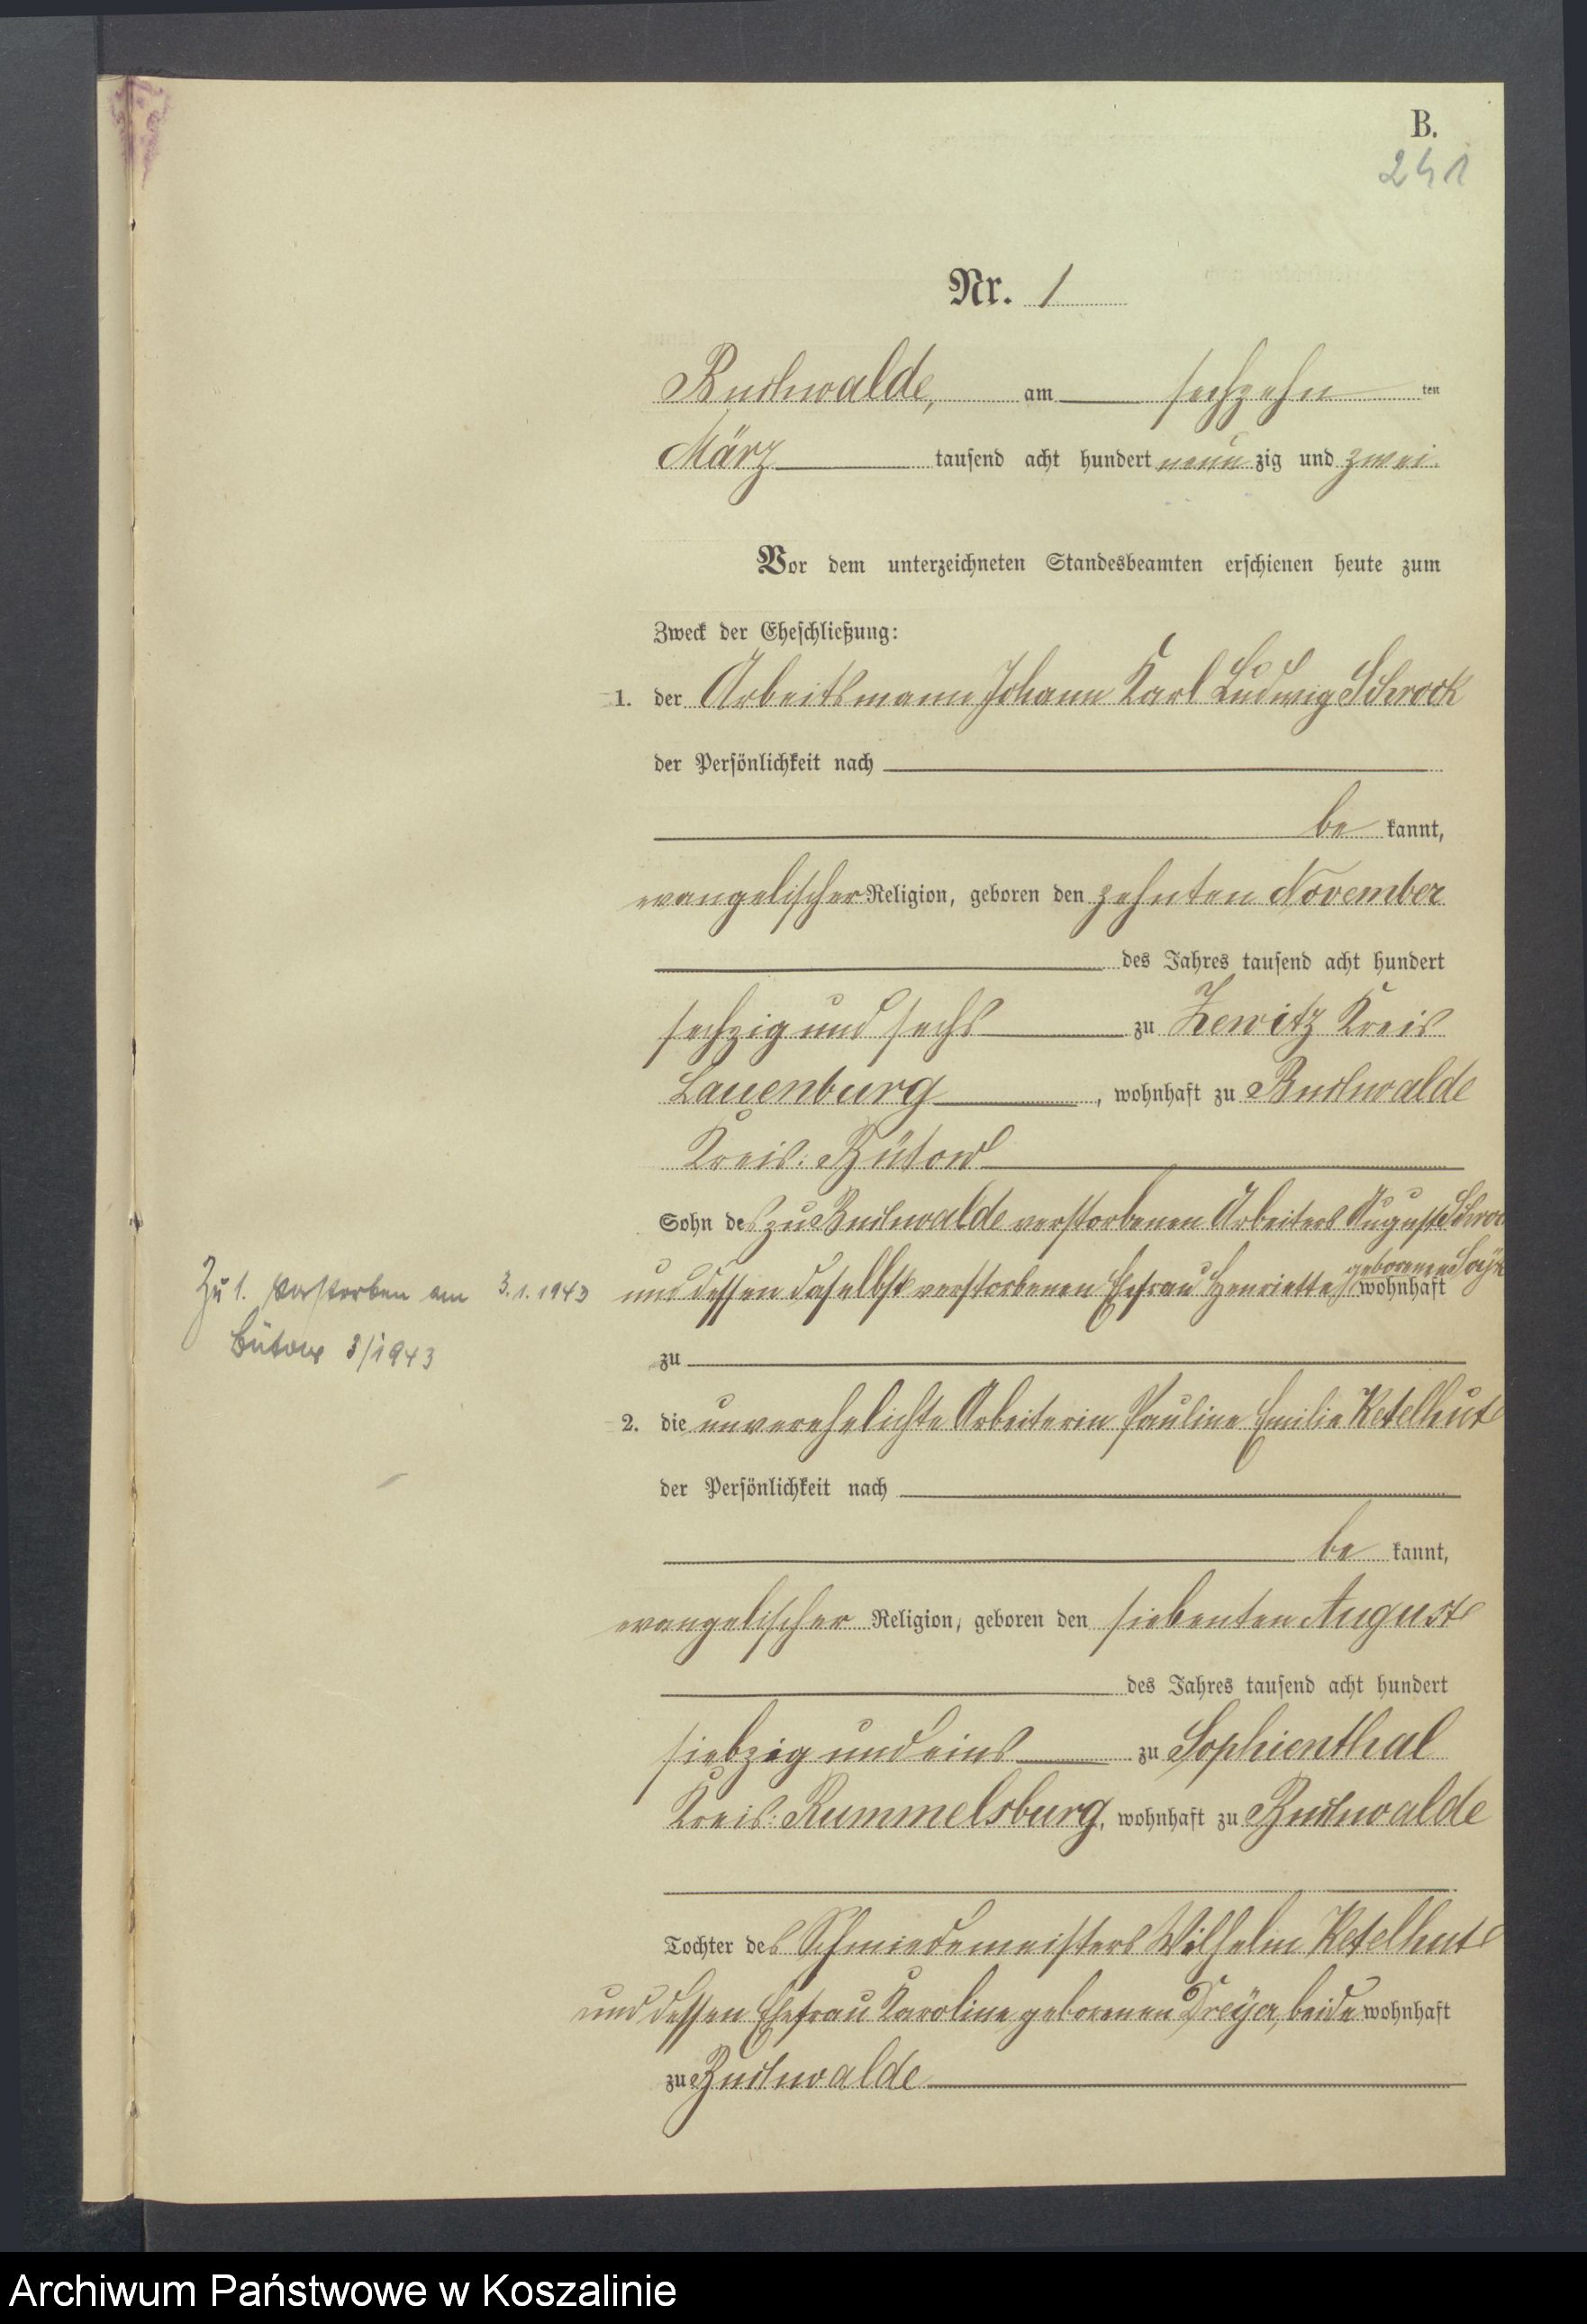 B.
241
Nr. 1
Buchwalde, am sechzehn ten
März tausend acht hundert neun zig und zwei.
Vor dem unterzeichneten Standesbeamten erschienen heute zum
Zweck der Eheschließung:
1. der Arbeitsmann Johann Karl Ludwig Schrock
der Persönlichkeit nach
be kannt,
evangelischer Religion, geboren den zehnten November
des Jahres tausend acht hundert
sechzig und sechs zu Zewitz Kreis
Lauenburg, wohnhaft zu Buchwalde
Kreis: Bütow
Sohn des zu Buchwalde verstorbenen Arbeiters August
geborenen
und dessen daselbst verstorbenen Ehefrau Henriette wohnhaft
Zu 1. verstorben am 3.1.1943
Bütow 3/1943
zu
2. die unverehelichte Arbeiterin Pauline Emilie Ketelhut
der Persönlichkeit nach
be kannt,
evangelischer Religion, geboren den siebenten August
des Jahres tausend acht hundert
siebzig und eins zu Sophienthal
Kreis: Rummelsburg, wohnhaft zu Buchwalde
Tochter des Schmiedemeisters Wilhelm Ketelhut
und dessen Ehefrau Karoline geborenen Dreÿer, beide wohnhaft
zu Buchwalde
Archiwum Państwowe w Koszalinie